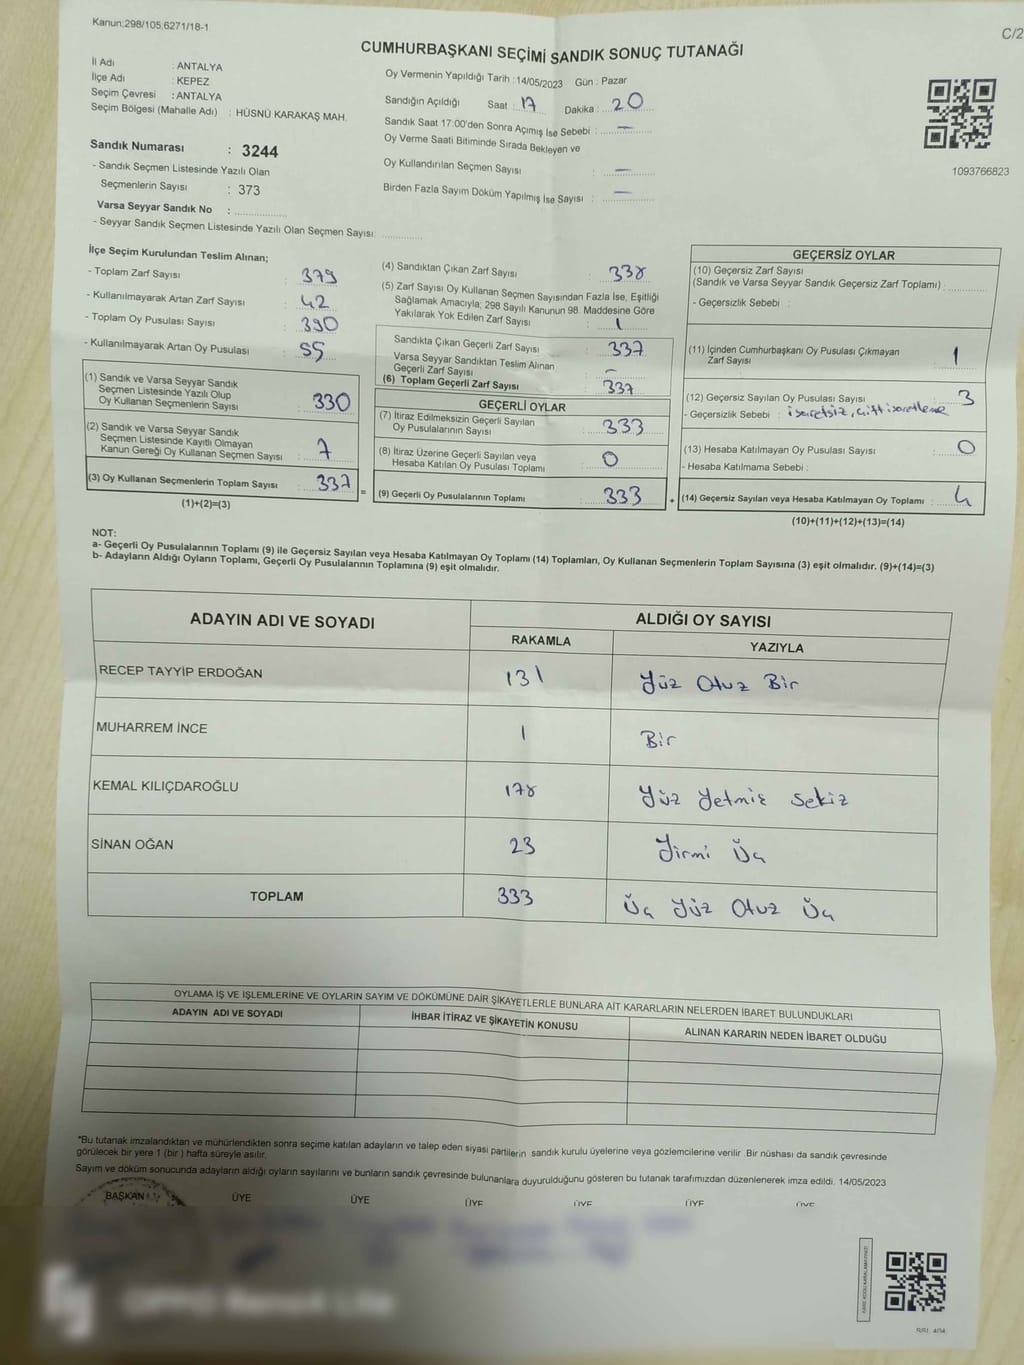 Kanun:298/105,6271/18-1
C/2
CUMHURBAŞKANI SEÇİMİ SANDIK SONUÇ TUTANAĞI
İl Adı : ANTALYA
İlçe Adı : KEPEZ
Seçim Çevresi : ANTALYA
Seçim Bölgesi (Mahalle Adı) : HÜSNÜ KARAKAŞ MAH.
Sandık Numarası : 3244
- Sandık Seçmen Listesinde Yazılı Olan
Seçmenlerin Sayısı : 373
Varsa Seyyar Sandık No :
- Seyyar Sandık Seçmen Listesinde Yazılı Olan Seçmen Sayısı:
Oy Vermenin Yapıldığı Tarih :14/05/2023 Gün : Pazar
Sandığın Açıldığı Saat : 17 Dakika : 20
Sandık Saat 17:00'den Sonra Açımış İse Sebebi : —
Oy Verme Saati Bitiminde Sırada Bekleyen ve
Oy Kullandırılan Seçmen Sayısı : —
Birden Fazla Sayım Döküm Yapılmış İse Sayısı : —
1093766823
İlçe Seçim Kurulundan Teslim Alınan;
- Toplam Zarf Sayısı : 379
- Kullanılmayarak Artan Zarf Sayısı : 42
- Toplam Oy Pusulası Sayısı : 390
- Kullanılmayarak Artan Oy Pusulası : 55
(1) Sandık ve Varsa Seyyar Sandık
Seçmen Listesinde Yazılı Olup
Oy Kullanan Seçmenlerin Sayısı : 330
(2) Sandık ve Varsa Seyyar Sandık
Seçmen Listesinde Kayıtlı Olmayan
Kanun Gereği Oy Kullanan Seçmen Sayısı : 7
(3) Oy Kullanan Seçmenlerin Toplam Sayısı : 337
(1)+(2)=(3)
(4) Sandıktan Çıkan Zarf Sayısı : 338
(5) Zarf Sayısı Oy Kullanan Seçmen Sayısından Fazla İse, Eşitliği
Sağlamak Amacıyla; 298 Sayılı Kanunun 98. Maddesine Göre
Yakılarak Yok Edilen Zarf Sayısı : 1
Sandıkta Çıkan Geçerli Zarf Sayısı : 337
Varsa Seyyar Sandıktan Teslim Alınan
Geçerli Zarf Sayısı : —
(6) Toplam Geçerli Zarf Sayısı : 337
GEÇERLİ OYLAR
(7) İtiraz Edilmeksizin Geçerli Sayılan
Oy Pusulalarının Sayısı : 333
(8) İtiraz Üzerine Geçerli Sayılan veya
Hesaba Katılan Oy Pusulası Toplamı : 0
= (9) Geçerli Oy Pusulalarının Toplamı : 333
GEÇERSİZ OYLAR
(10) Geçersiz Zarf Sayısı
(Sandık ve Varsa Seyyar Sandık Geçersiz Zarf Toplamı) :
- Geçersizlik Sebebi :
(11) İçinden Cumhurbaşkanı Oy Pusulası Çıkmayan
Zarf Sayısı : 1
(12) Geçersiz Sayılan Oy Pusulası Sayısı : 3
- Geçersizlik Sebebi : işaretsiz, çift işaretleme
(13) Hesaba Katılmayan Oy Pusulası Sayısı : 0
- Hesaba Katılmama Sebebi :
+ (14) Geçersiz Sayılan veya Hesaba Katılmayan Oy Toplamı : 4
(10)+(11)+(12)+(13)=(14)
NOT:
a- Geçerli Oy Pusulalarının Toplamı (9) ile Geçersiz Sayılan veya Hesaba Katılmayan Oy Toplamı (14) Toplamları, Oy Kullanan Seçmenlerin Toplam Sayısına (3) eşit olmalıdır. (9)+(14)=(3)
b- Adayların Aldığı Oyların Toplamı, Geçerli Oy Pusulalarının Toplamına (9) eşit olmalıdır.
ADAYIN ADI VE SOYADI ALDIĞI OY SAYISI
RAKAMLA YAZIYLA
RECEP TAYYİP ERDOĞAN 131 Yüz Otuz Bir
MUHARREM İNCE 1 Bir
KEMAL KILIÇDAROĞLU 178 Yüz Yetmiş Sekiz
SİNAN OĞAN 23 Yirmi Üç
TOPLAM 333 Üç Yüz Otuz Üç
OYLAMA İŞ VE İŞLEMLERİNE VE OYLARIN SAYIM VE DÖKÜMÜNE DAİR ŞİKAYETLERLE BUNLARA AİT KARARLARIN NELERDEN İBARET BULUNDUKLARI
ADAYIN ADI VE SOYADI İHBAR İTİRAZ VE ŞİKAYETİN KONUSU ALINAN KARARIN NEDEN İBARET OLDUĞU
*Bu tutanak imzalandıktan ve mühürlendikten sonra seçime katılan adayların ve talep eden siyasi partilerin sandık kurulu üyelerine veya gözlemcilerine verilir. Bir nüshası da sandık çevresinde
görülecek bir yere 1 (bir ) hafta süreyle asılır.
Sayım ve döküm sonucunda adayların aldığı oyların sayılarını ve bunların sandık çevresinde bulunanlara duyurulduğunu gösteren bu tutanak tarafımızdan düzenlenerek imza edildi. 14/05/2023
BAŞKAN ÜYE ÜYE ÜYE ÜYE ÜYE ÜYE